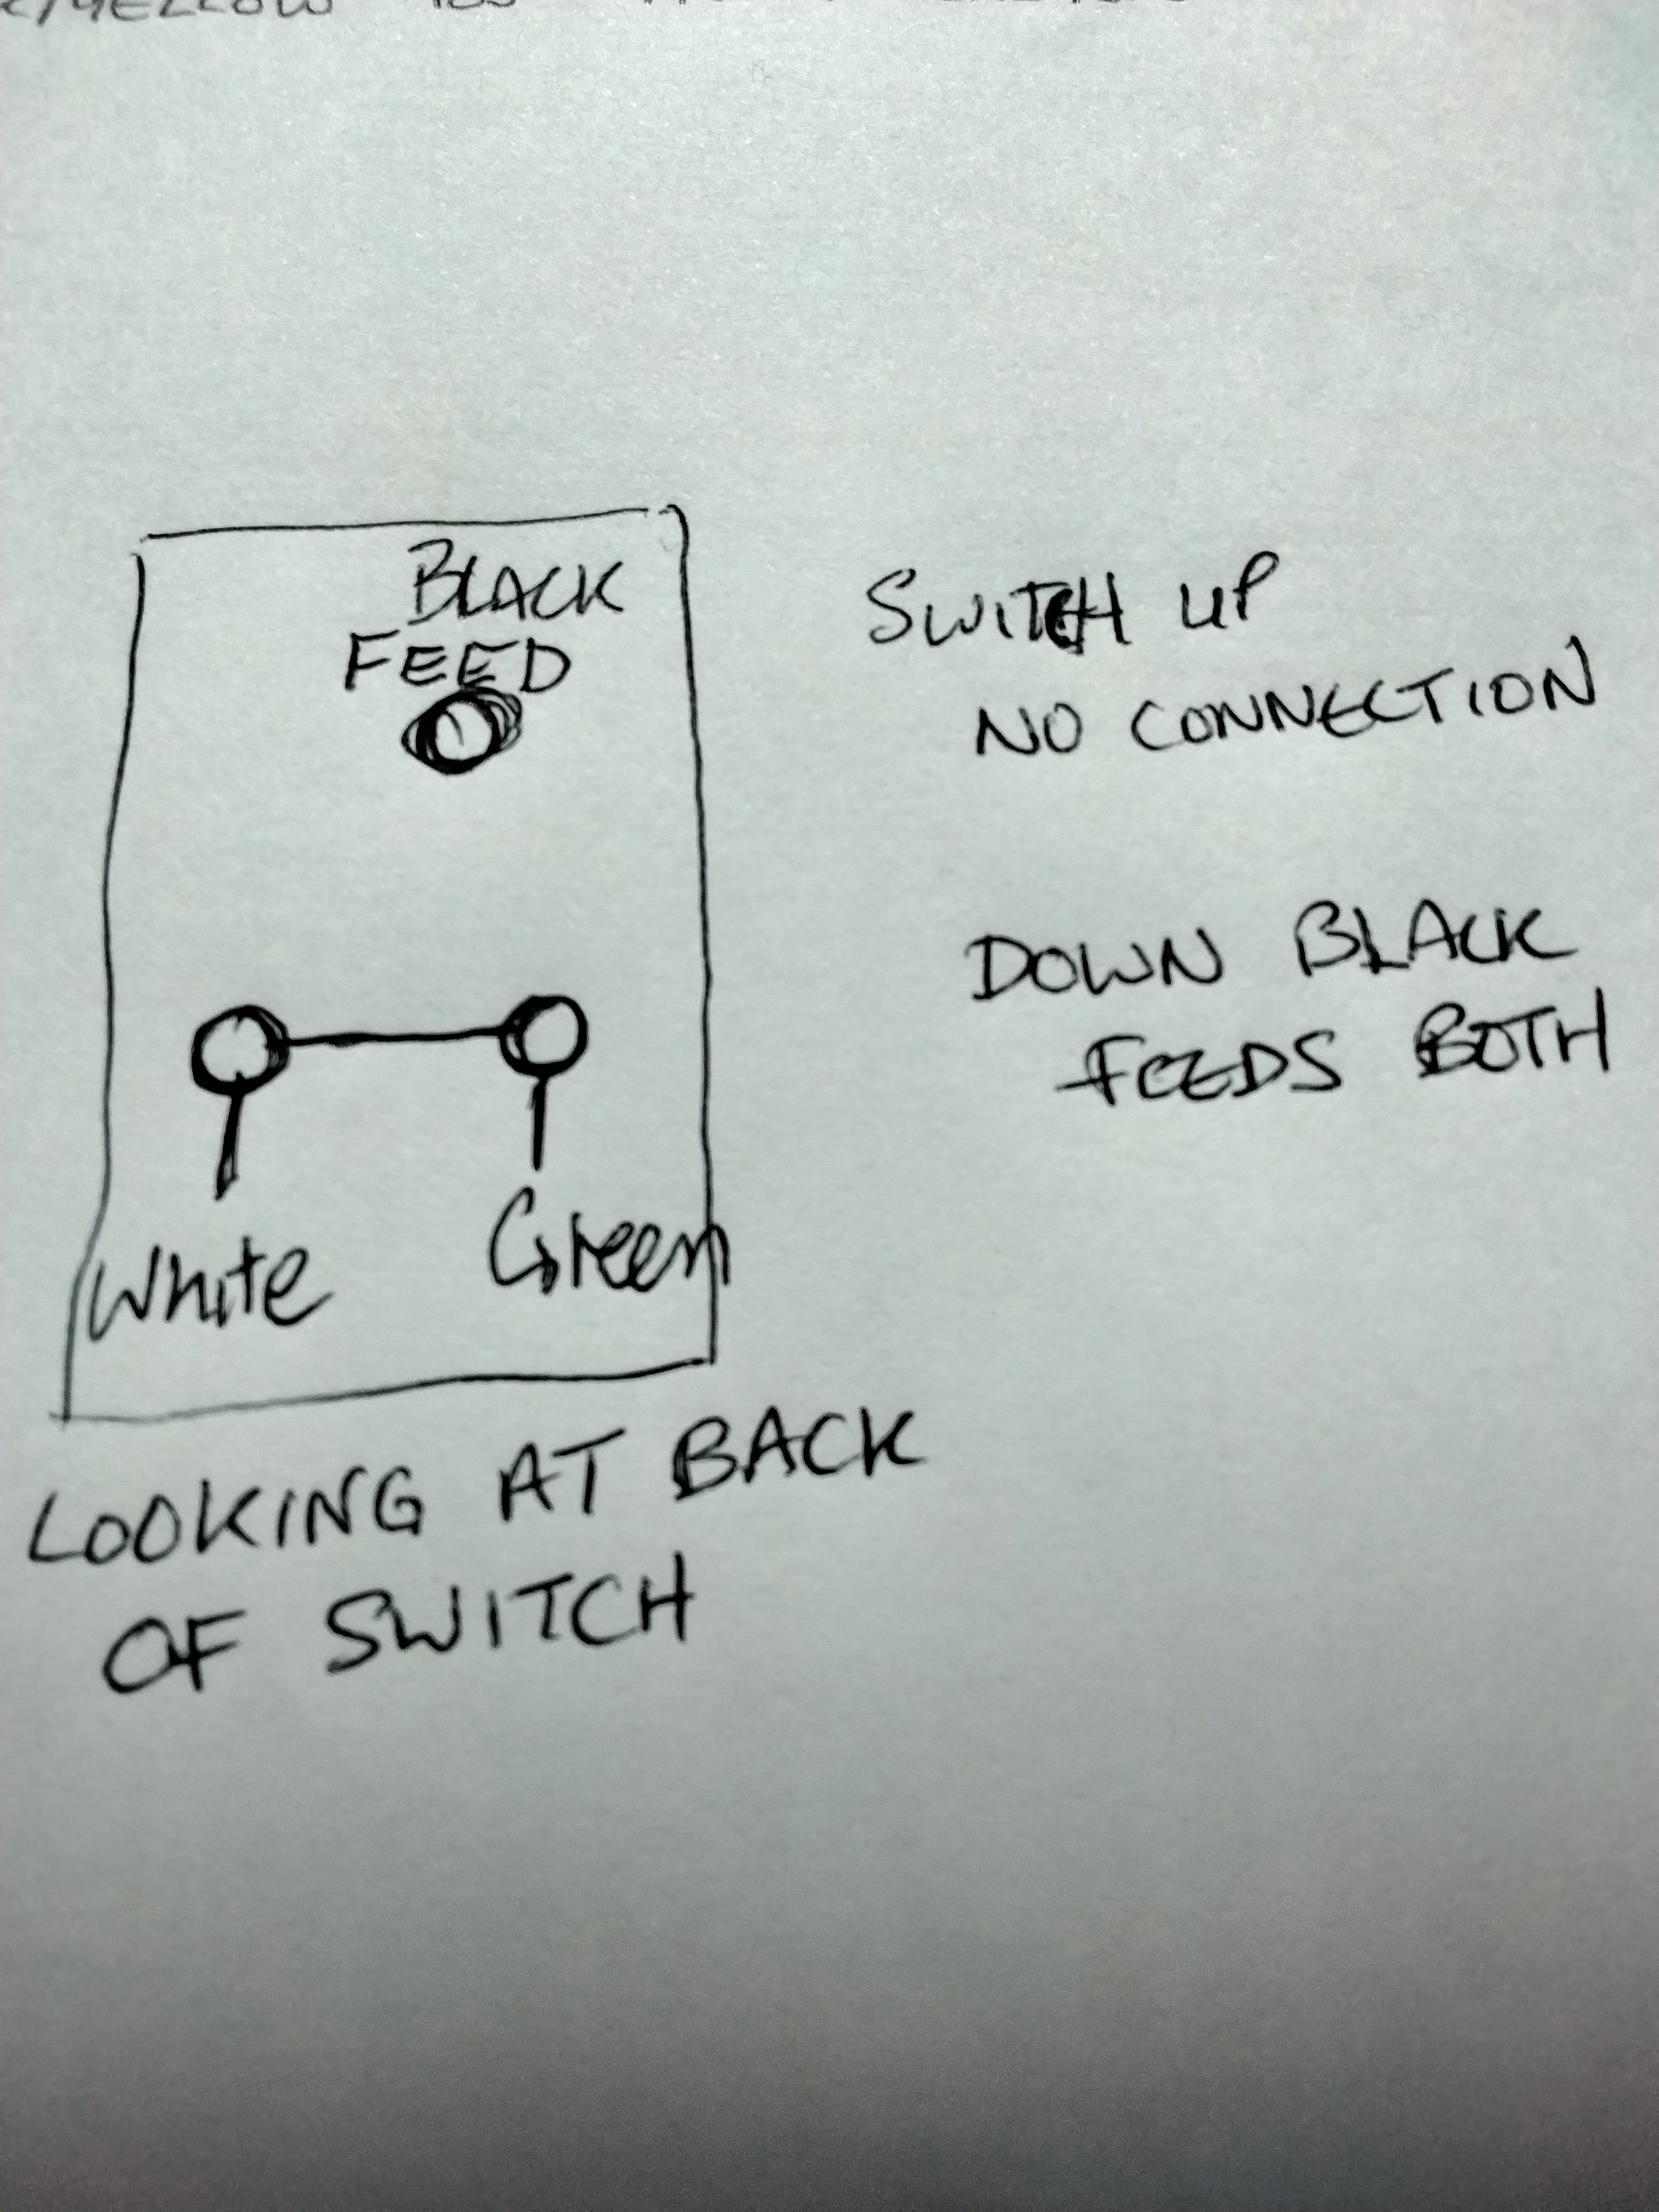 BLACK
FEED
SWITCH UP
NO CONNECTION
DOWN BLACK
FEEDS BOTH
White Green
LOOKING AT BACK
OF SWITCH